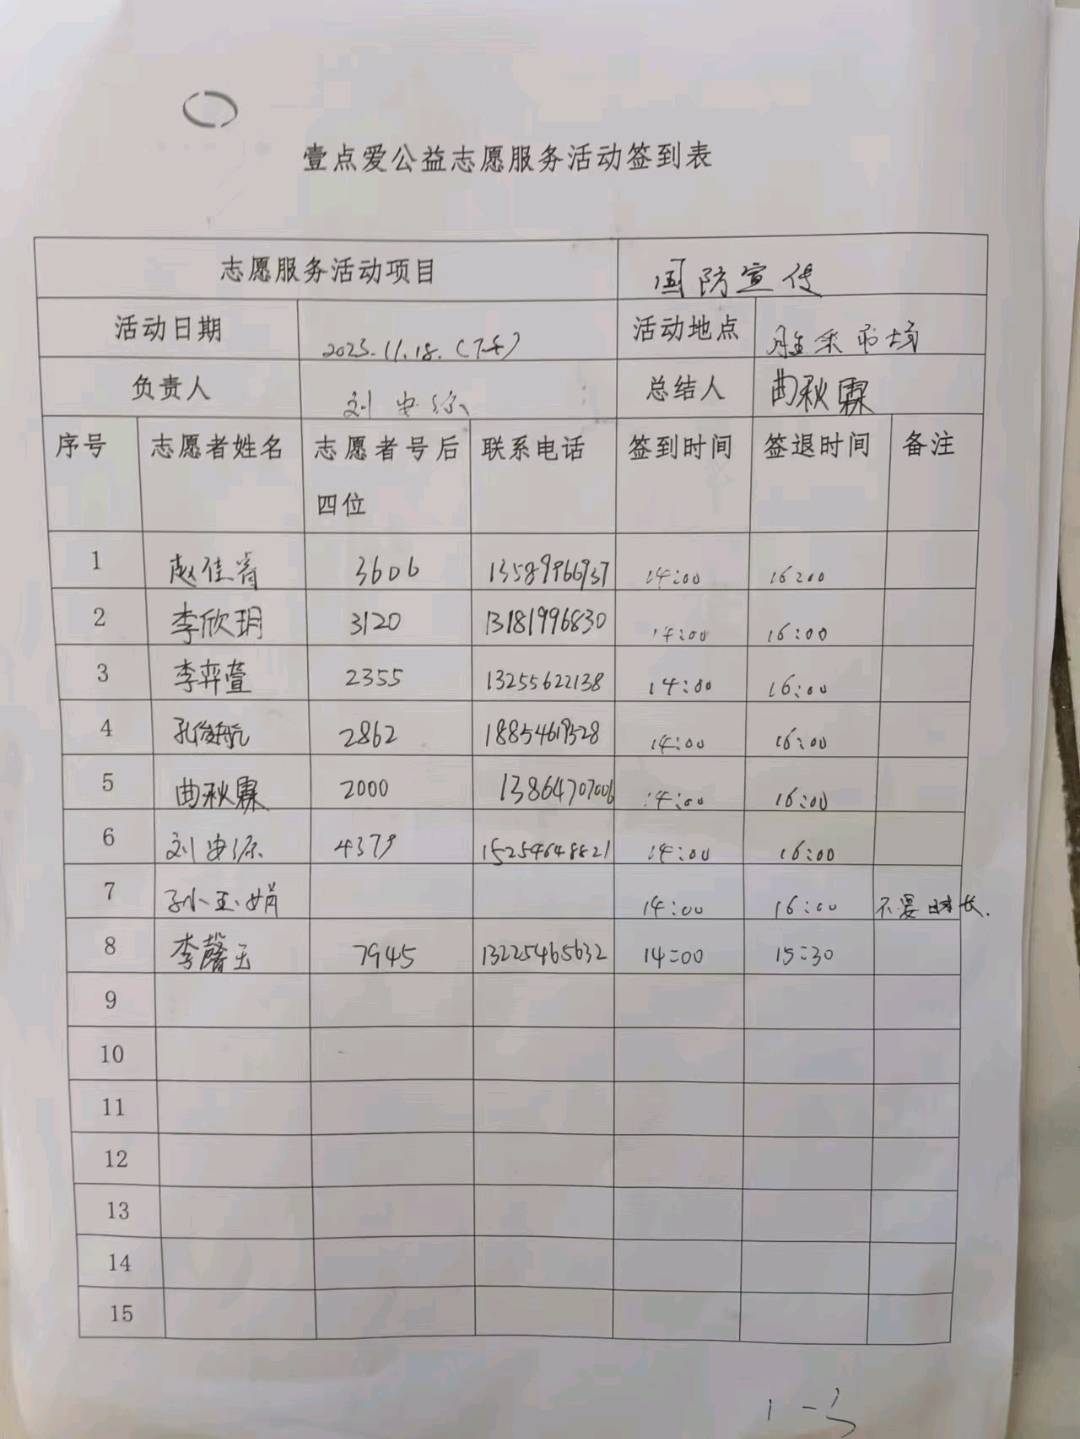 壹点爱公益志愿服务活动签到表
志愿服务活动项目 国防宣传
活动日期 2023.11.18.(下午) 活动地点 胜采市场
负责人 刘安源 总结人 曲秋霖
序号 志愿者姓名 志愿者号后四位 联系电话 签到时间 签退时间 备注
1 赵佳睿 3606 13589966937 14:00 16:00
2 李欣玥 3120 13181996830 14:00 16:00
3 李弈萱 2355 13255622138 14:00 16:00
4 孔俊航 2862 14:00 16:00
5 曲秋霖 2000 13864707006 14:00 16:00
6 刘安源 4379 15254648821 14:00 16:00
7 孙玉娟 14:00 16:00 不要时长.
8 李馨玉 7945 13225465632 14:00 15:30
9
10
11
12
13
14
15